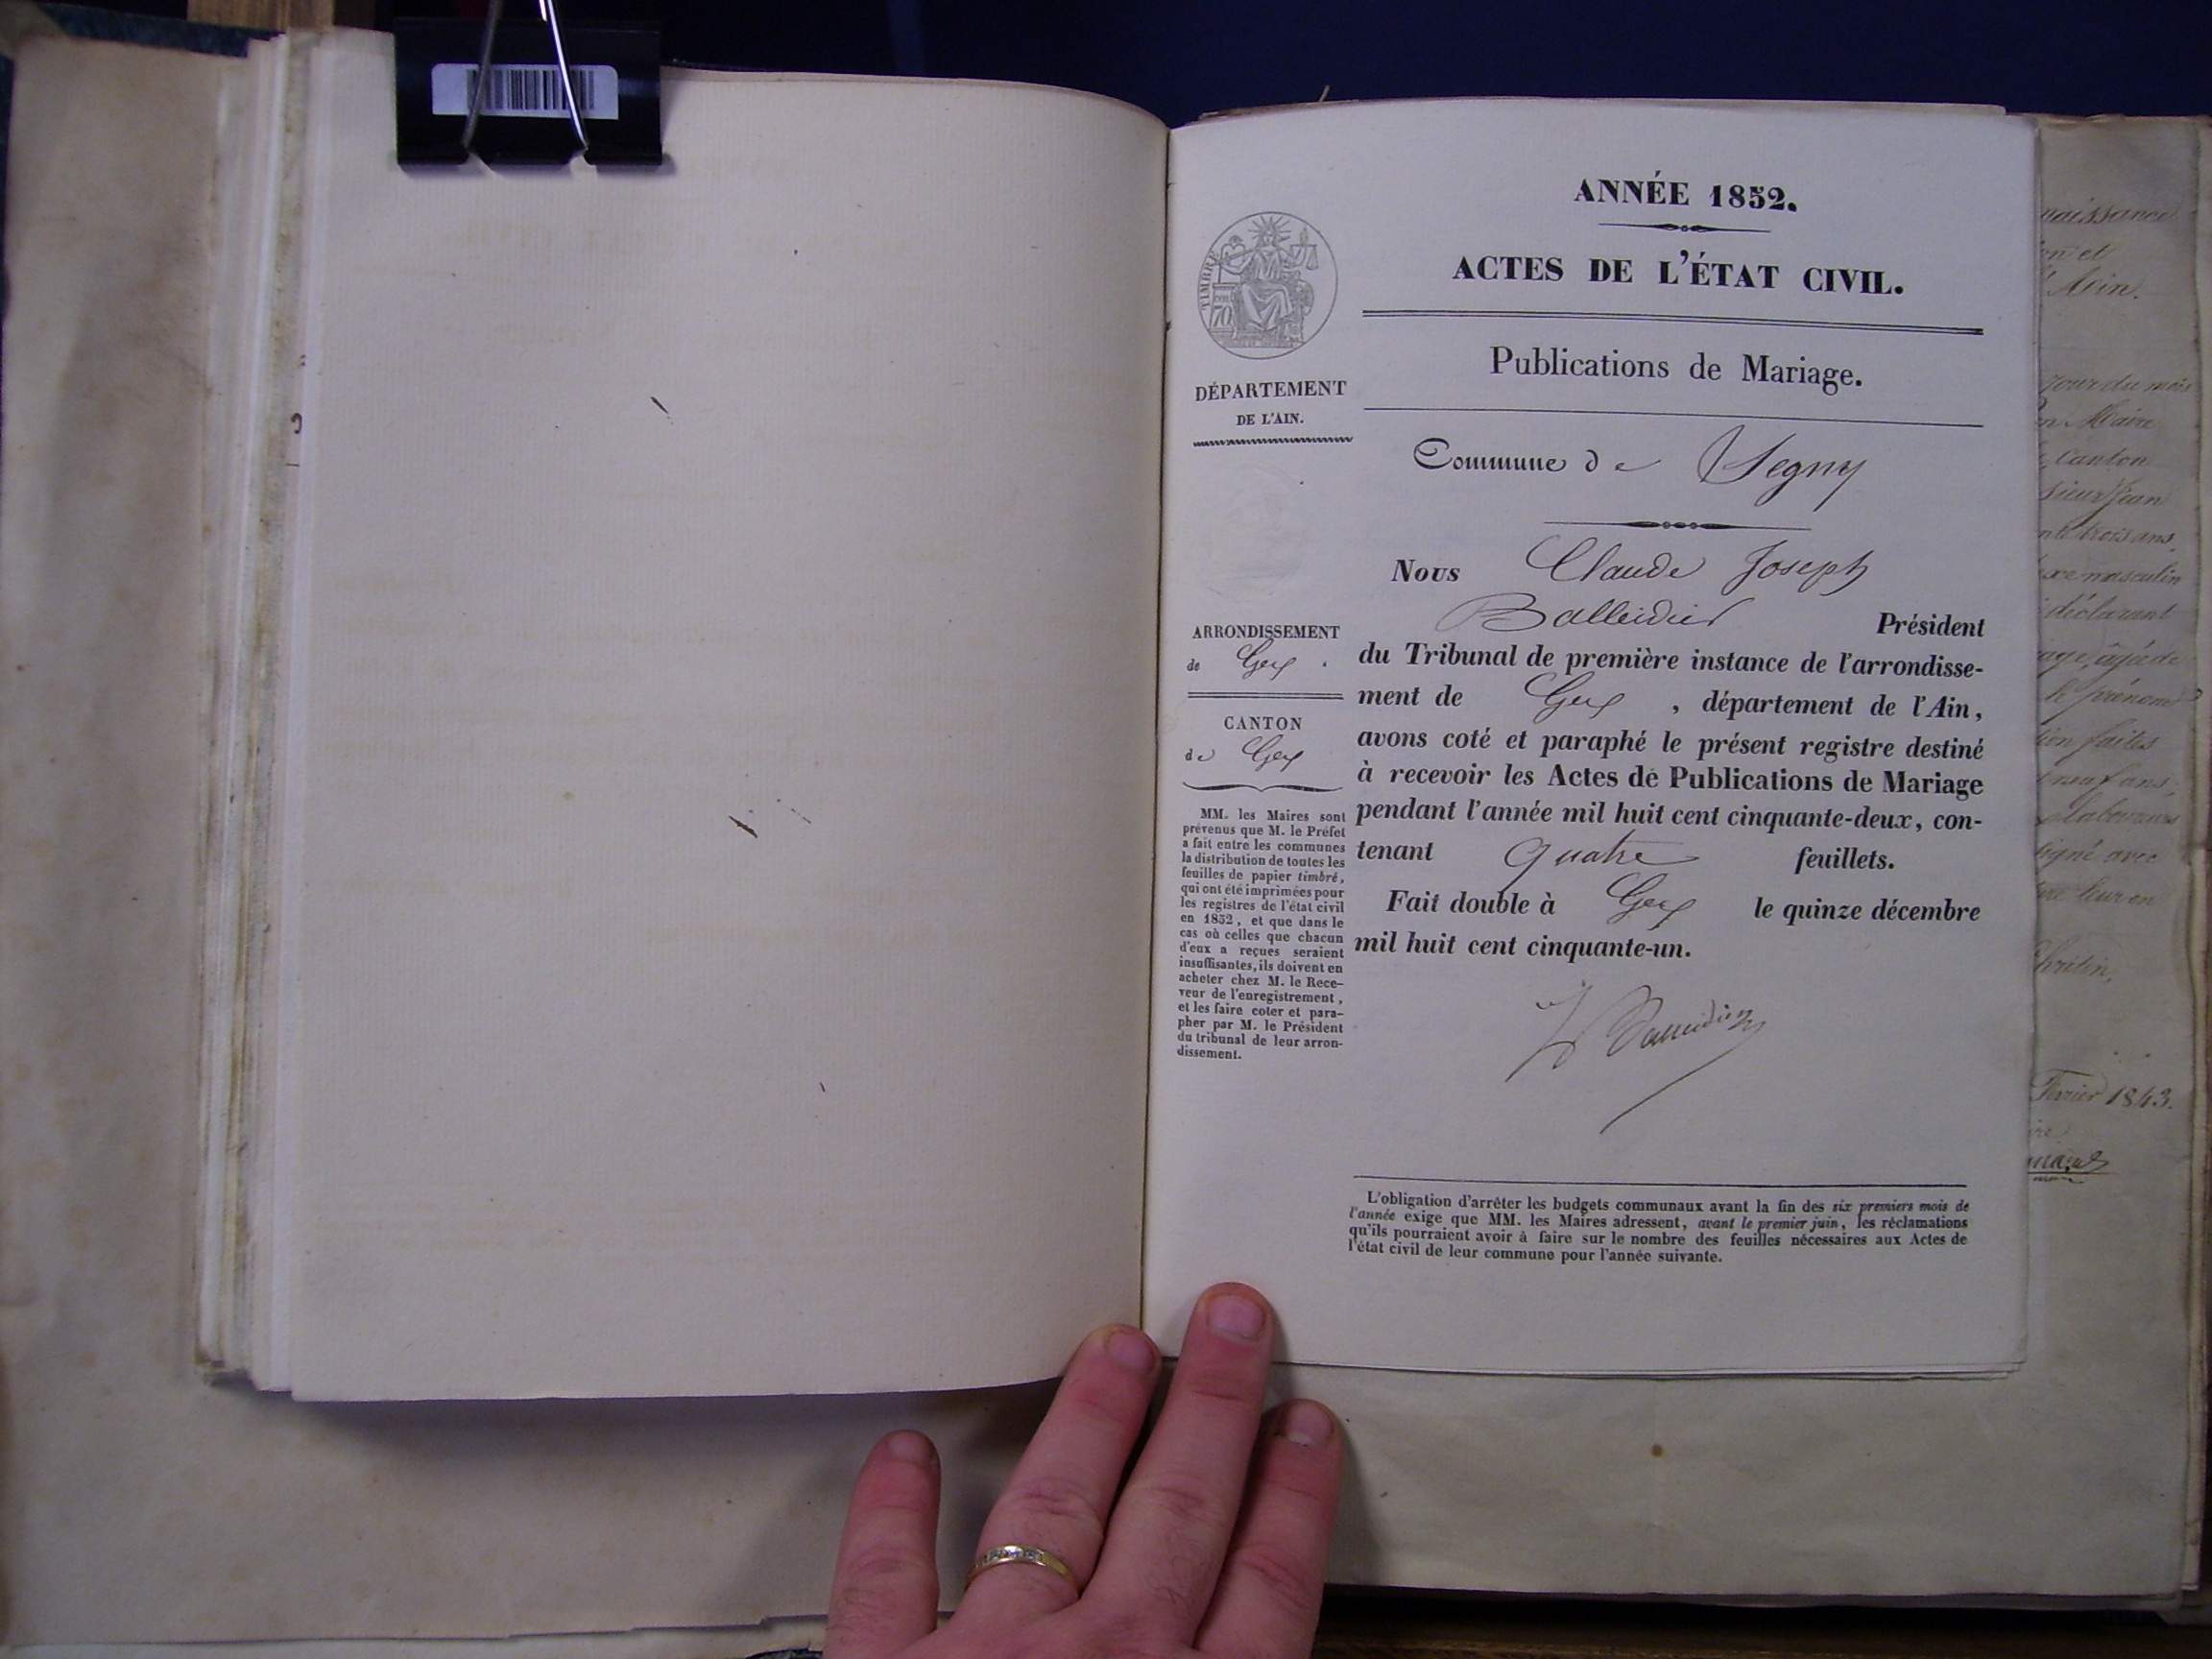 ANNÉE 1852.
ACTES DE L'ÉTAT CIVIL.
Publications de Mariage.
TIMBRE
70
DÉPARTEMENT
DE L'AIN.
Commune de Segny
Nous Claude Joseph
Balleidier Président
du Tribunal de première instance de l'arrondisse-
ment de Gex, département de l'Ain,
avons coté et paraphé le présent registre destiné
à recevoir les Actes de Publications de Mariage
pendant l'année mil huit cent cinquante-deux, con-
tenant quatre feuillets.
Fait double à Gex le quinze décembre
mil huit cent cinquante-un.
ARRONDISSEMENT
de Gex.
CANTON
de Gex
MM. les Maires sont
prévenus que M. le Préfet
a fait entre les communes
la distribution de toutes les
feuilles de papier timbré,
qui ont été imprimées pour
les registres de l'état civil
en 1852, et que dans le
cas où celles que chacun
d'eux a reçues seraient
insuffisantes, ils doivent en
acheter chez M. le Rece-
veur de l'enregistrement,
et les faire coter et para-
pher par M. le Président
du tribunal de leur arron-
dissement.
L'obligation d'arrêter les budgets communaux avant la fin des six premiers mois de
l'année exige que MM. les Maires adressent, avant le premier juin, les réclamations
qu'ils pourraient avoir à faire sur le nombre des feuilles nécessaires aux Actes de
l'état civil de leur commune pour l'année suivante.
naissance
et
Ain.
jour du mois
Maire
Canton
sieur Jean
trois ans,
masculin
déclarant
âgé de
prénoms
faites
neuf ans,
laboureurs
signé avec
Février 1843.